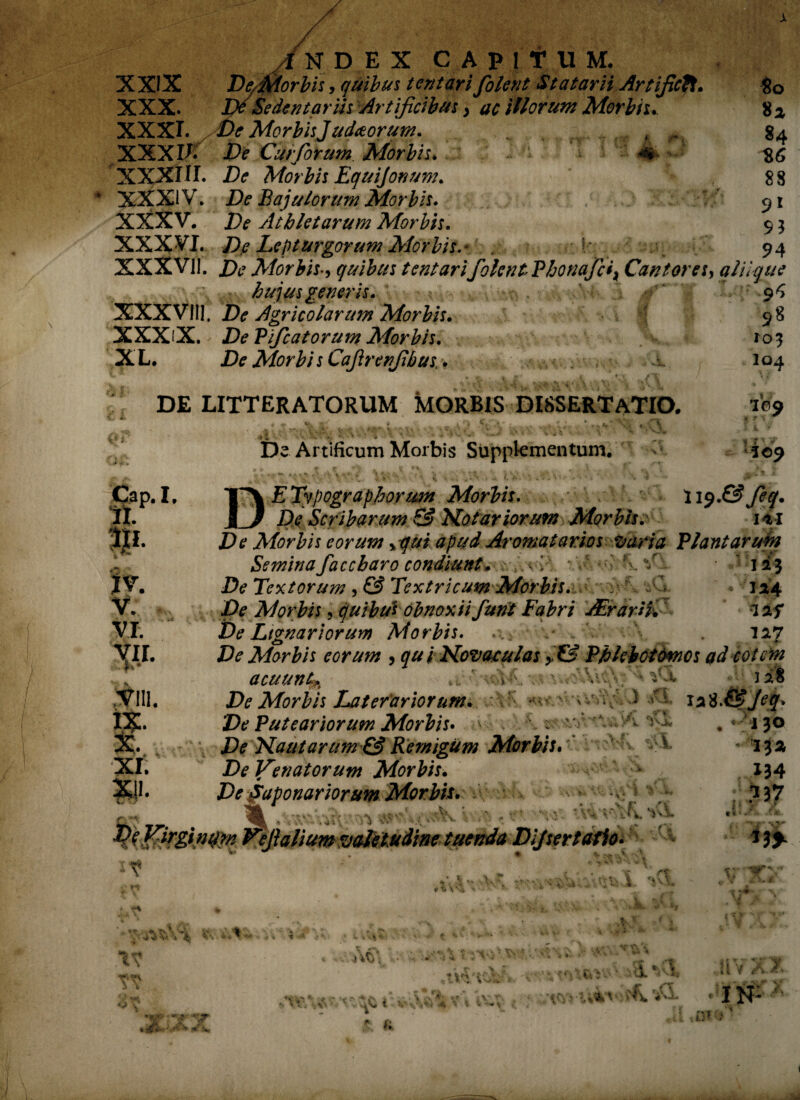 INDEX CAPITUM.
XXIX De Morbis, quibus tentari solent Statarii Artifices. 80
XXX. De Sedentariis Artificibus, ac illorum Morbis. 82
XXXI. De Morbis Judæorum. 84
XXXII. De Cursorum Morbis. 86
XXXIII. De Morbis Equisonum. 88
XXXIV. De Bajulorum Morbis. 91
XXXV. De Athletarum Morbis. 93
XXXVI. De Lepturgorum Morbis. 94
XXXVII. De Morbis, quibus tentari solent Phonasci, Cantores, aliique
hujus generis. 96
XXXVIII. De Agricolarum Morbis. 98
XXXIX. De Piscatorum Morbis. 103
XL. De Morbis Castrensibus. 104
DE LITTERATORUM MORBIS DISSERTATIO. 109
De Artificum Morbis Supplementum. 109
Cap. I. DE Typographorum Morbis. 119.& seq.
II. De Scribarum & Notariorum Morbis. 121
III. De Morbis eorum, qui apud Aromatarios varia Plantarum
Semina saccharo condiunt. 123
IV. De Textorum, & Textricum Morbis. 124
V. De Morbis, quibus obnoxii sunt Fabri Ærarii. 125
VI. De Lignariorum Morbis. 127
VII. De Morbis eorum, qui Novaculas, & Phlebotomos ad cotem
acuunt. 128
VIII. De Morbis Laterariorum. 128.& seq.
IX. De Puteariorum Morbis. 130
X. De Nautarum & Remigum Morbis. 132
XI. De Venatorum Morbis. 134
XII. De Saponariorum Morbis. 137
De Virginum Vestalium valetudine tuenda Dissertatio. 139
IN-